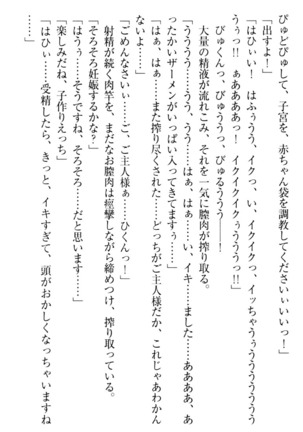 ぴゅどぴゅして、子宮を、赤ちゃん袋を調教してください」
「出すよ！」
「はひぃい！　はふぅうう、イクっ、い、イクイクっ、イッちゃうぅうううううう
うぅっ！！　ぁああああっ！　イクイクイクぅうううっ！」
びゅくんっ、びゅううっ、びゅるううう――！
大量の精液が流れこみ、それを一気に膣肉が搾り取る。
「うううう、うう、ううう……はぁ、はぁ……い、イキ……ました……あああ、あ
ったかいザーメンがいっぱい入ってきてますぅ……」
「はぁ、はぁ……また搾り尽くされた……どっちがご主人様だか、これじゃあわかん
ないよ……」
「ごめんなさいぃ……ご、ご主人様ぁ……ひくんっ！」
射精が続く肉竿を、まだなお膣肉は痙攣しながら締めつけ、搾り取っていた。
「そろそろ妊娠するかな？」
「はぅう……そうですね、そろそろ……だと思います……」
「楽しみだね、子作りえっち」
「はひぃ……受精したら、きっと、イキすぎて、頭がおかしくなっちゃいますね